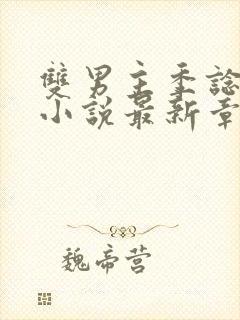 雙男主手諗
小說最新章
魏帝营